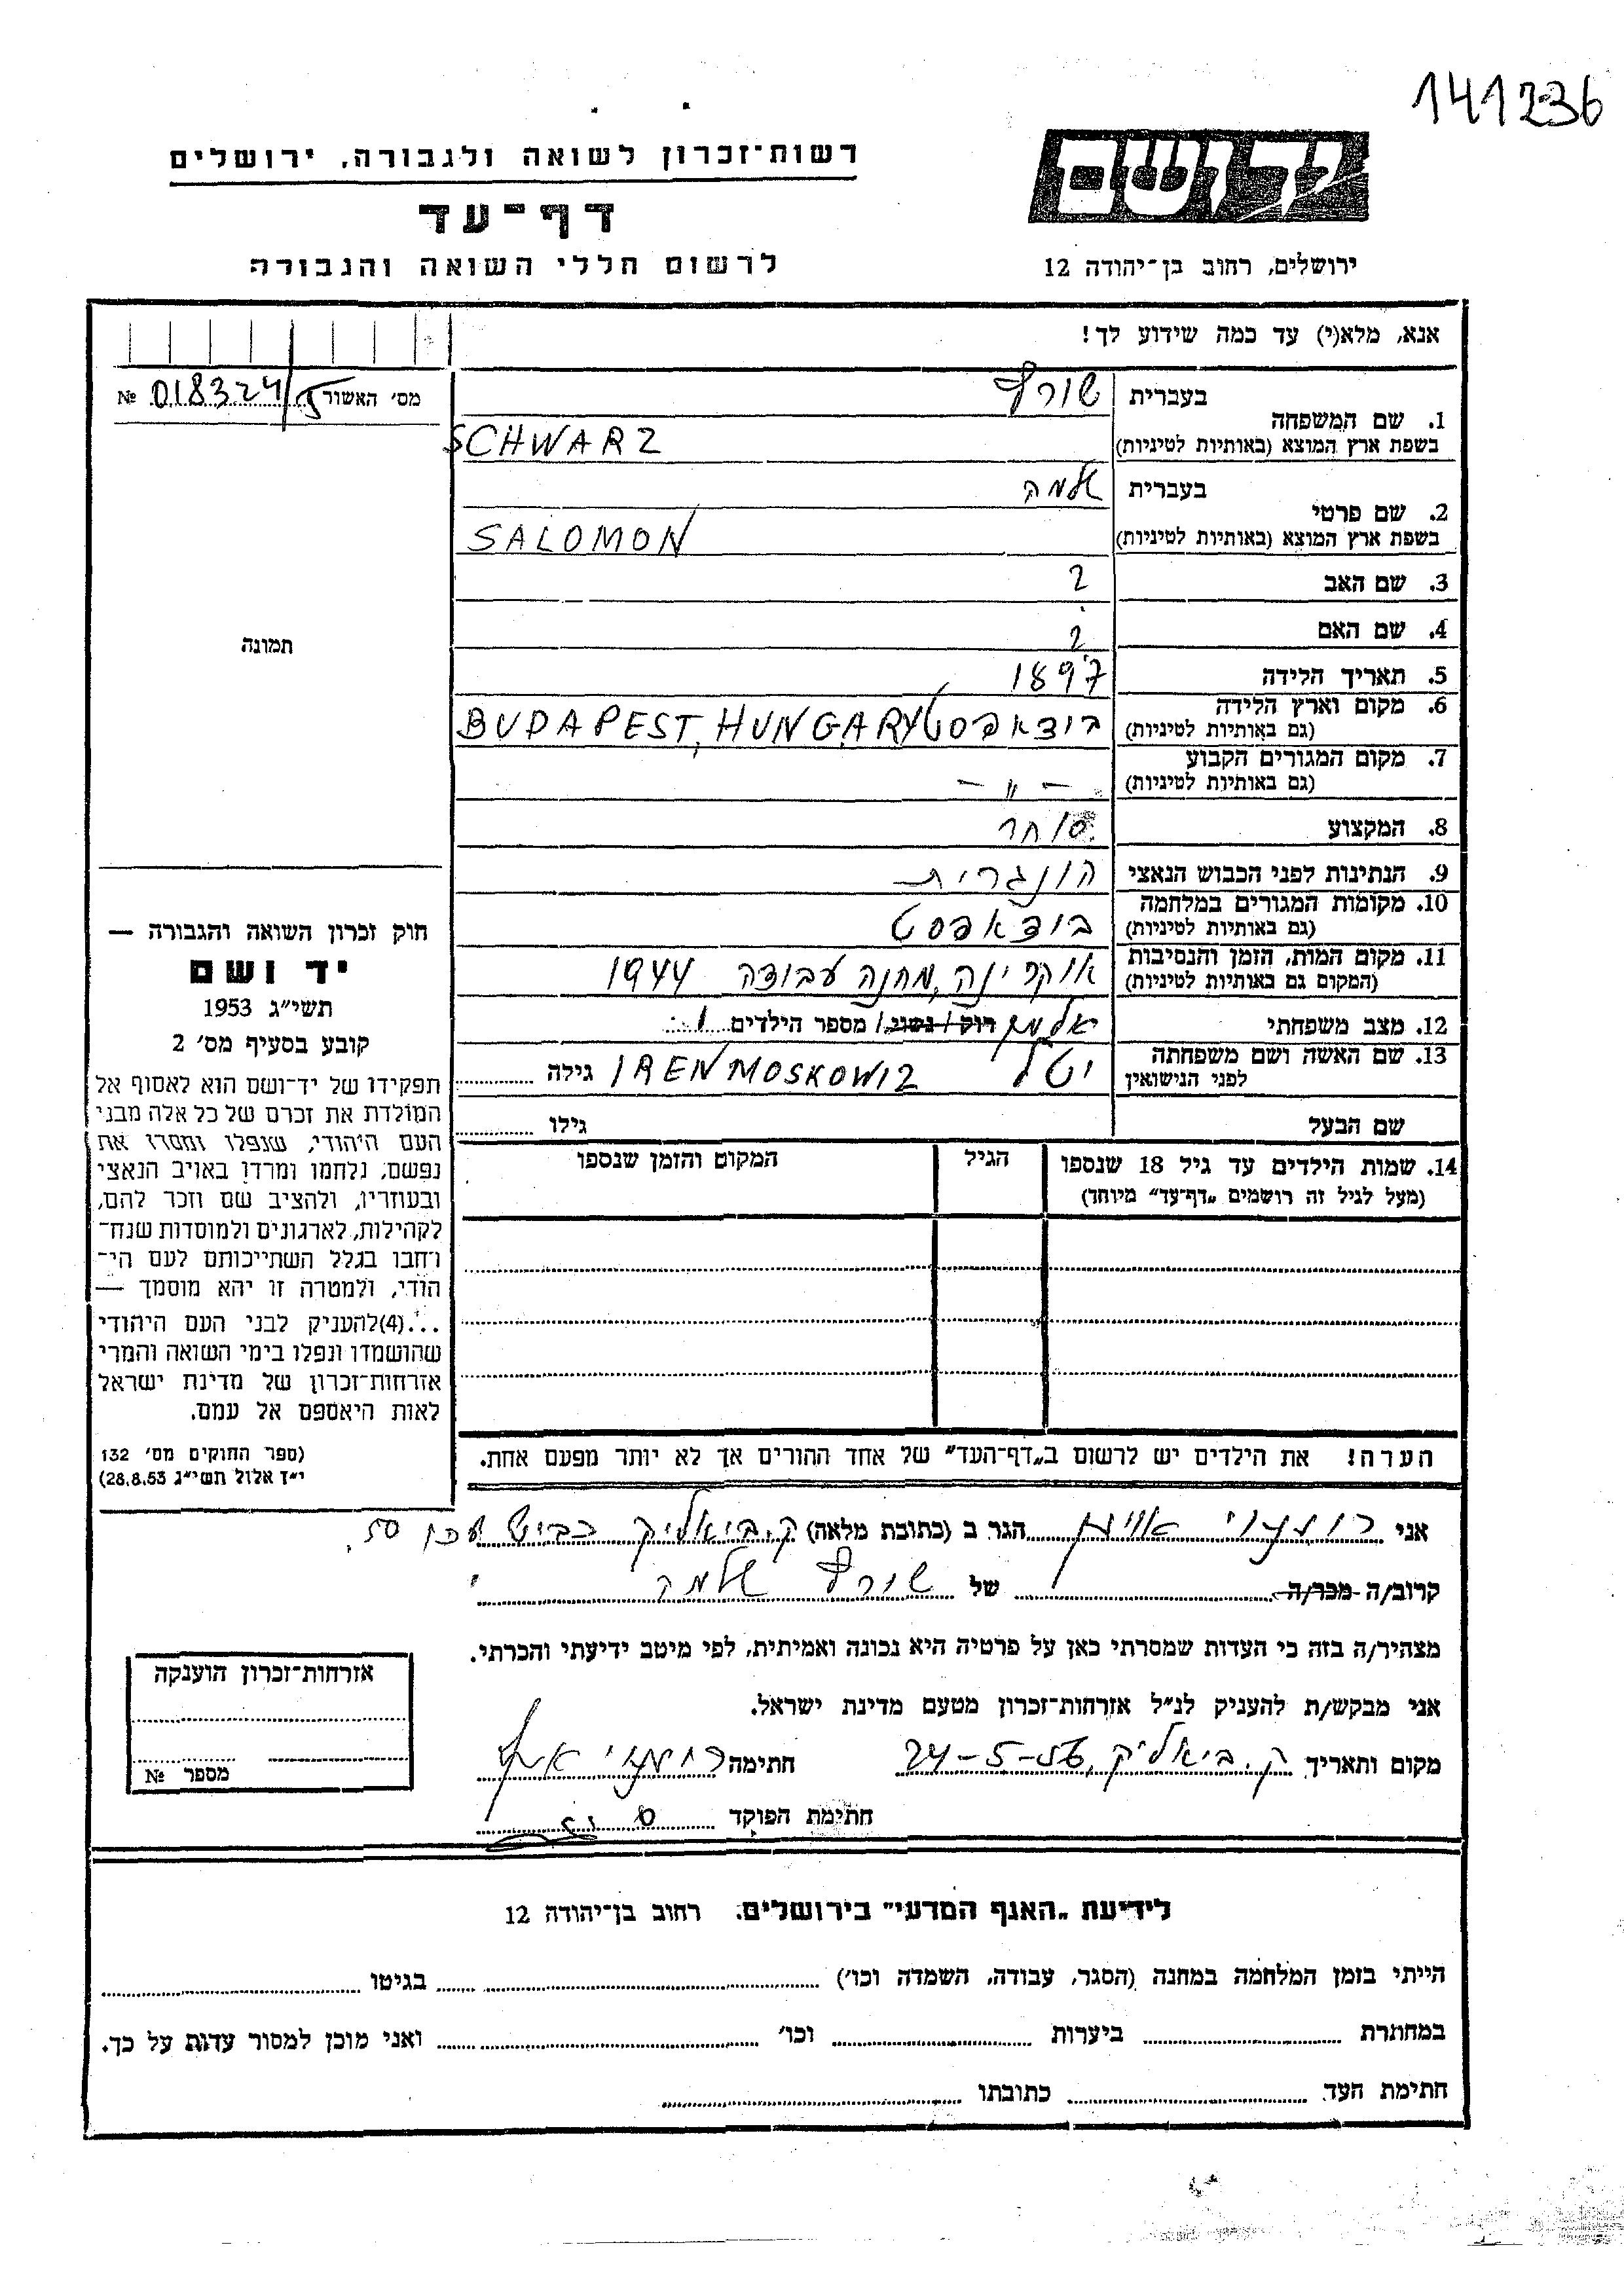 141236
רשות-זכרון לשואה ולגבורה, ירושלים
דף-עד
לרשום חללי השואה והגבורה
יד ושם
ירושלים, רחוב בן-יהודה 12
אנא, מלא(י) עד כמה שידוע לך!
מס׳ האשור № 018324
1. שם המשפחה
בעברית שורץ
בשפת ארץ המוצא (באותיות לטיניות) SCHWARZ
2. שם פרטי
בעברית שלמה
בשפת ארץ המוצא (באותיות לטיניות) SALOMON
3. שם האב ?
4. שם האם ?
5. תאריך הלידה 1897
6. מקום וארץ הלידה (גם באותיות לטיניות) בודאפסט BUDAPEST, HUNGARY
7. מקום המגורים הקבוע (גם באותיות לטיניות) —〃 —
8. המקצוע סוחר
9. הנתינות לפני הכבוש הנאצי הונגרית
10. מקומות המגורים במלחמה (גם באותיות לטיניות) בודאפסט
11. מקום המות, הזמן והנסיבות (המקום גם באותיות לטיניות) אוקרינה, מחנה עבודה 1944
12. מצב משפחתי רוק / נשוי / אלמן מספר הילדים 1
13. שם האשה ושם משפחתה לפני הנישואין IREN MOSKOWIZ גילה
שם הבעל גילו
14. שמות הילדים עד גיל 18 שנספו
(מעל לגיל זה רושמים „דף-עד״ מיוחד)
הגיל
המקום והזמן שנספו
הערה! את הילדים יש לרשום ב„דף-העד״ של אחד ההורים אך לא יותר מפעם אחת.
תמונה
חוק זכרון השואה והגבורה —
יד ושם
תשי״ג 1953
קובע בסעיף מס׳ 2
תפקידו של יד-ושם הוא לאסוף אל
המולדת את זכרם של כל אלה מבני
העם היהודי, שנפלו ומסרו את
נפשם, נלחמו ומרדו באויב הנאצי
ובעוזריו, ולהציב שם וזכר להם,
לקהילות, לארגונים ולמוסדות שנח-
רבו בגלל השתייכותם לעם הי-
הודי, ולמטרה זו יהא מוסמך —
...(4)להעניק לבני העם היהודי
שהושמדו ונפלו בימי השואה והמרי
אזרחות-זכרון של מדינת ישראל
לאות היאספם אל עמם.
(ספר החוקים מס׳ 132
י״ד אלול תשי״ג 28.8.53)
אני הגר ב (כתובת מלאה) ק. ביאליק 50
קרוב/ה מכר/ה של שורץ שלמה
מצהיר/ה בזה כי העדות שמסרתי כאן על פרטיה היא נכונה ואמיתית, לפי מיטב ידיעתי והכרתי.
אני מבקש/ת להעניק לנ״ל אזרחות-זכרון מטעם מדינת ישראל.
מקום ותאריך ק. ביאליק, 24-5-56 חתימה
חתימת הפוקד
אזרחות-זכרון הוענקה
מספר №
לידיעת „האגף המדעי״ בירושלים, רחוב בן-יהודה 12
הייתי בזמן המלחמה במחנה (הסגר, עבודה, השמדה וכו׳) בגיטו
במחתרת ביערות וכו׳ ואני מוכן למסור עדות על כך.
חתימת העד כתובתו